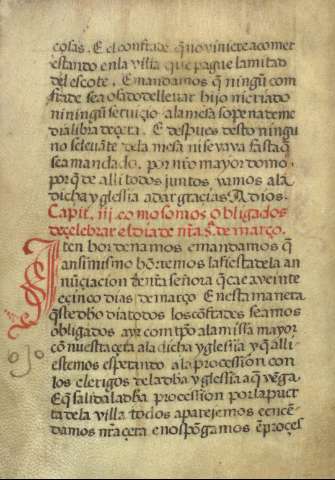 cosas. E el confrade q̄ no viniere a comer
estando en la villa que pague la mitad
del escote. E mandamos q̄ ningũ com
frade sea osado de lleuar hijo ni criado
ni ningũ seruizio a la mesa so pena de me
dia libra de çera. E despues desto ningu
no se leuãte de la mesa ni se vaya fasta q̄
sea mandado, por nr̃o mayordomo.
por q̄ de alli todos juntos vamos a la
dicha yglesia a dar gracias A dios.
Capit. iij. como somos obligados
de çelebrar el dia de nr̃a S.ª de março.
Iten hordenamos e mandamos q̄
ansimismo hõrremos la fiesta de la an
nũçiacion de nr̃a señora que cae a veinte
e çinco dias de março. E nesta manera
q̄ este dho dia todos los cõfrades seamos
obligados a yr con tpõ a la missa mayor
cõ nuestra çera a la dicha yglesia y q̄ alli
estemos esperando a la proçession con
los clerigos de la dha yglesia a q̄ vẽga.
E q̄ salida la dha proçession por la puer
ta de la villa todos aparejemos e ençe
damos nr̃a çera e nos põgamos en proçes
ojo